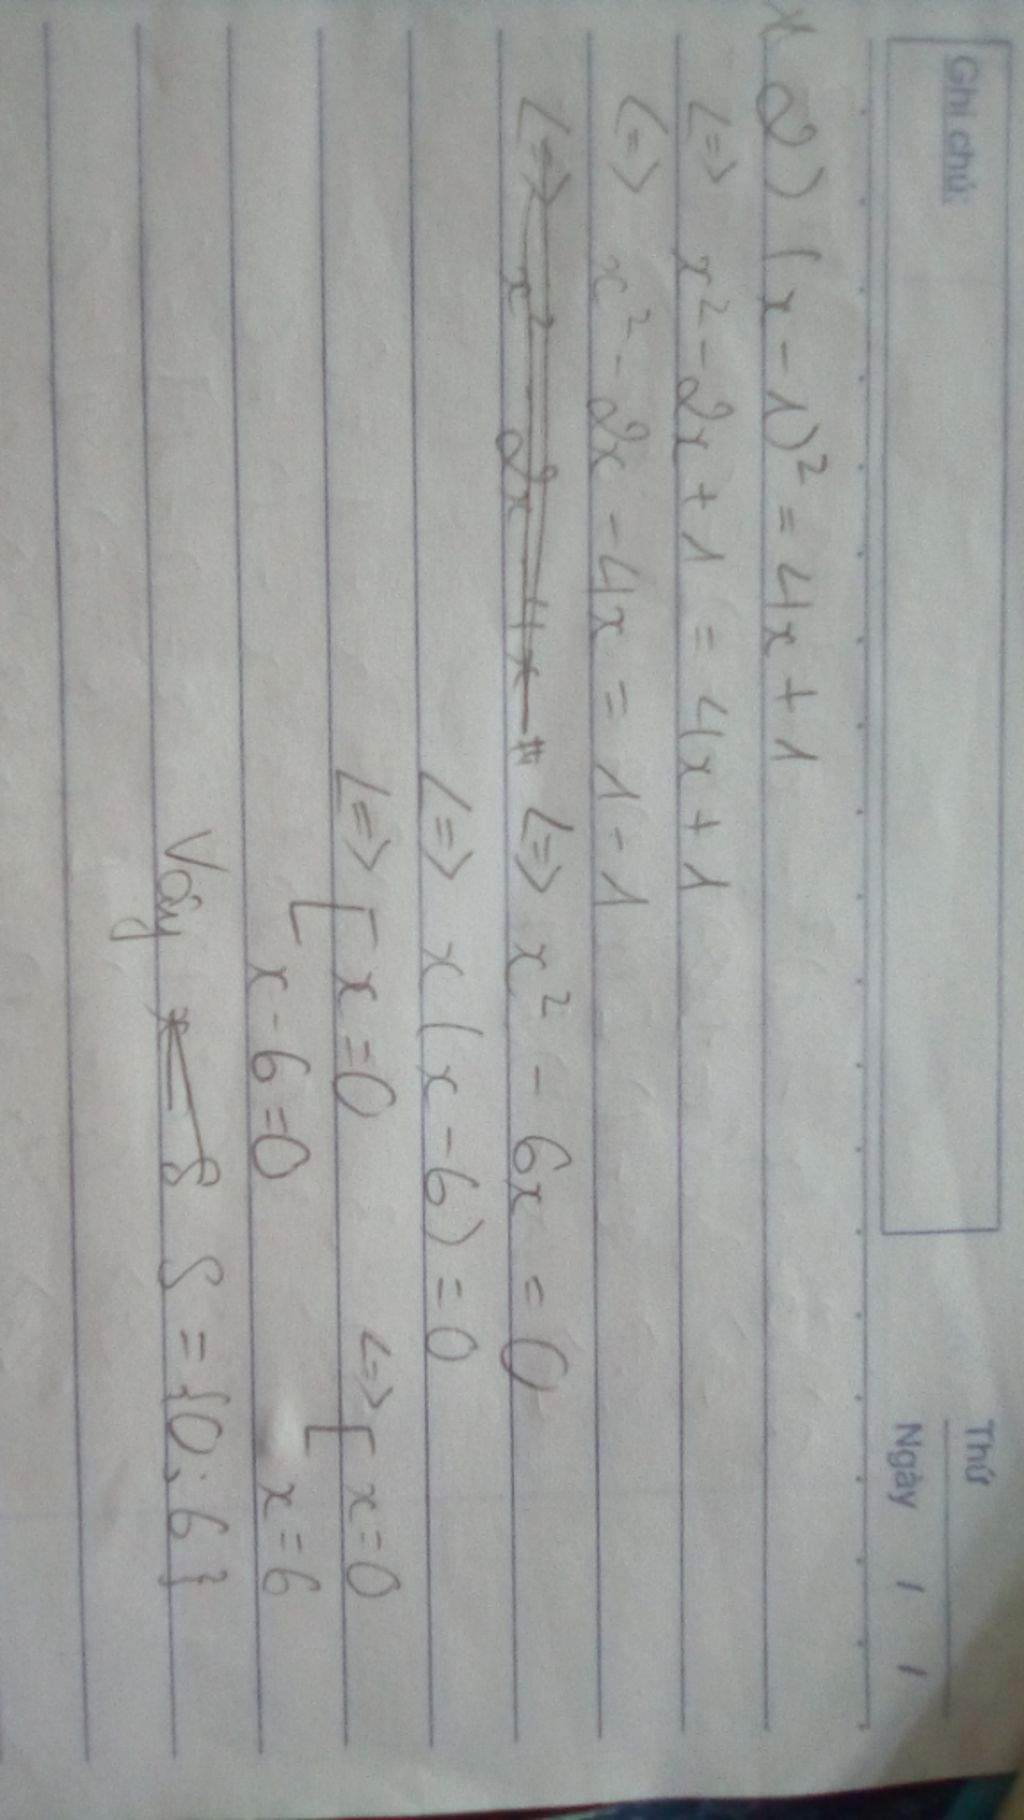 Ghi chú:
Thứ
Ngày / /
* 2) (x - 1)² = 4x + 1
<=> x² - 2x + 1 = 4x + 1
<=> x² - 2x - 4x = 1 - 1
<=> x² - 6x = 0
<=> x(x - 6) = 0
<=> [ x = 0 <=> [ x = 0
x - 6 = 0 x = 6
Vậy S = {0; 6}